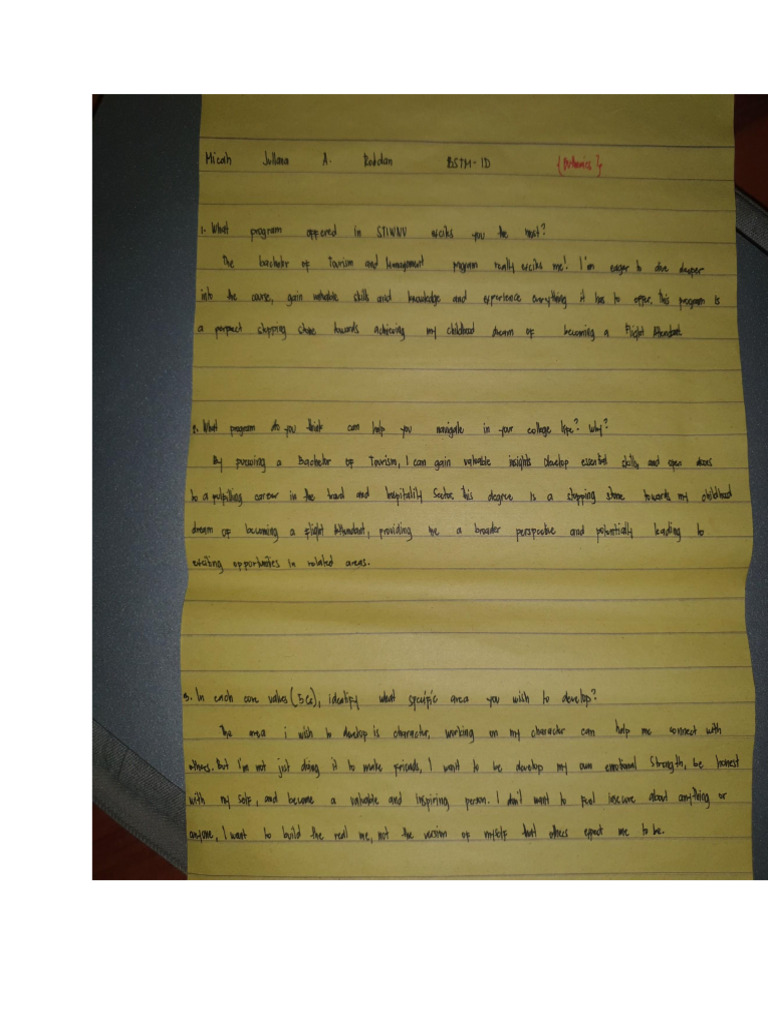 Micah Juliana A. BSTM-1D
1. What program offered in STIWNU excites you the most?
The bachelor of Tourism and Management program really excites me! I'm eager to dive deeper
into the course, gain valuable skills and knowledge and experience everything it has to offer, this program is
a perfect stepping stone towards achieving my childhood dream of becoming a Flight Attendant
2. What program do you think can help you navigate in your college life? Why?
By pursuing a Bachelor of Tourism, I can gain valuable insights develop essential skills and open doors
to a fulfilling career in the travel and hospitality sector, this degree is a stepping stone towards my childhood
dream of becoming a flight Attendant, providing me a broader perspective and potentially leading to
exciting opportunites in related areas.
3. In each core values (5Cs), identify what specific area you wish to develop?
The area i wish to develop is character, working on my character can help me connect with
others. But I'm not just doing it to make friends, I want to be develop my own emotional strength, be honest
with my self, and become a valuable and inspiring person. I don't want to feel insecure about anything or
anyone, I want to build the real me, not the version of myself that others expect me to be.